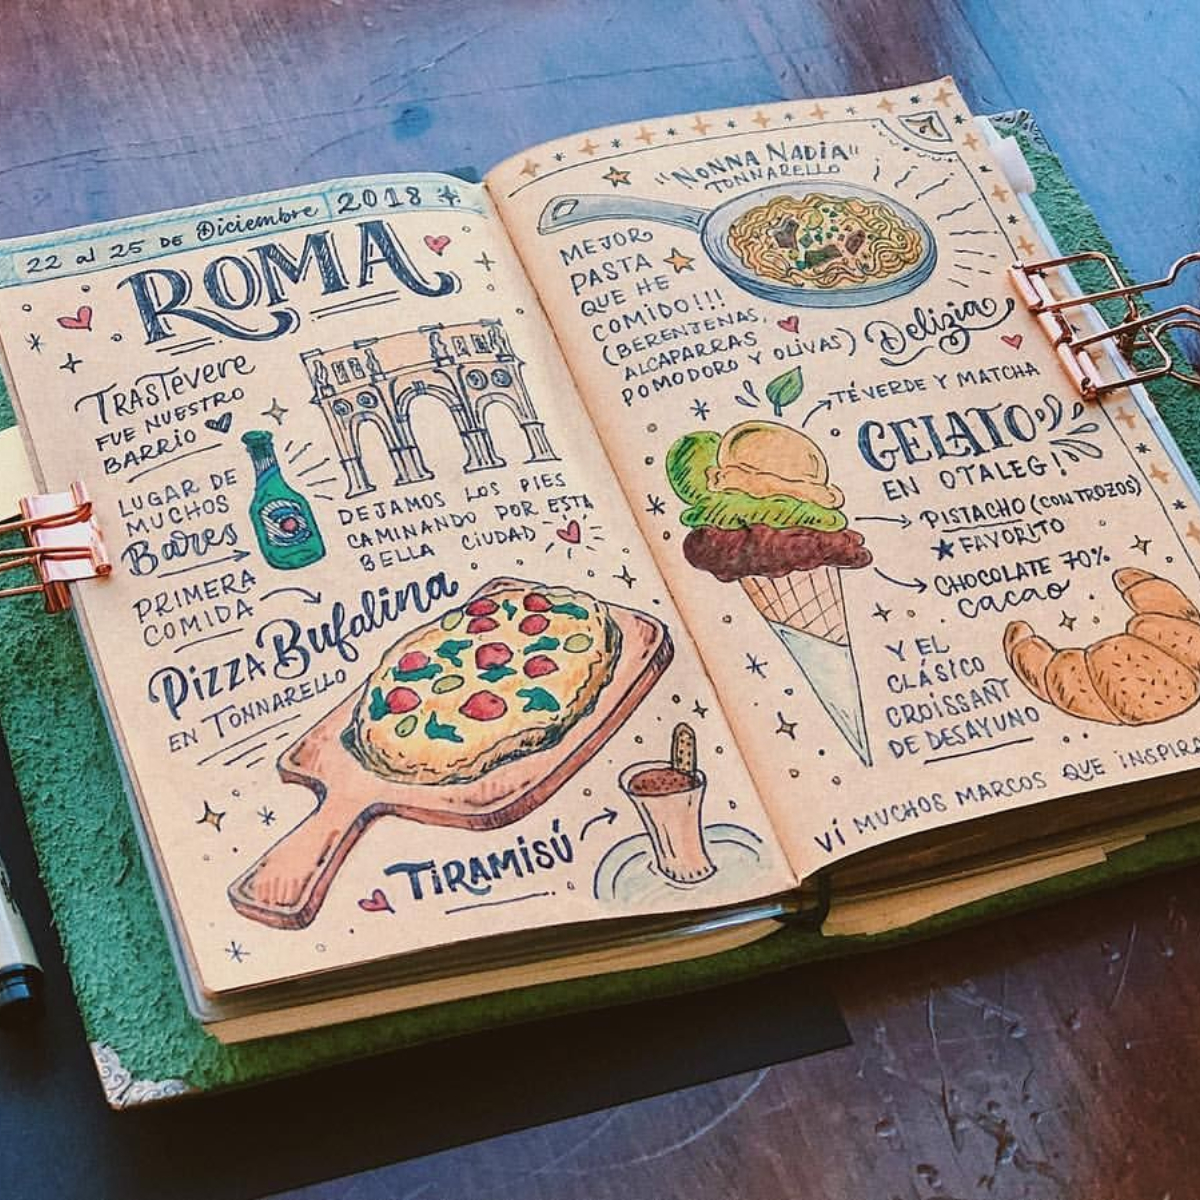 22 al 25 DE Diciembre 2018
ROMA
TRASTEVERE
FUE NUESTRO
BARRIO
LUGAR DE
MUCHOS
Bares
DEJAMOS LOS PIES
CAMINANDO POR ESTA
BELLA CIUDAD
PRIMERA
COMIDA
PIZZA Bufalina
EN TONNARELLO
TIRAMISÚ
"NONNA NADIA"
TONNARELLO
MEJOR
PASTA
QUE HE
COMIDO!!!
(BERENJENAS,
ALCAPARRAS
POMODORO Y OLIVAS)
Delizia
TÉ VERDE Y MATCHA
GELATO
EN OTALEG!
PISTACHO (CON TROZOS)
FAVORITO
CHOCOLATE 70%
cacao
Y EL
CLÁSICO
CROISSANT
DE DESAYUNO
VÍ MUCHOS MARCOS QUE